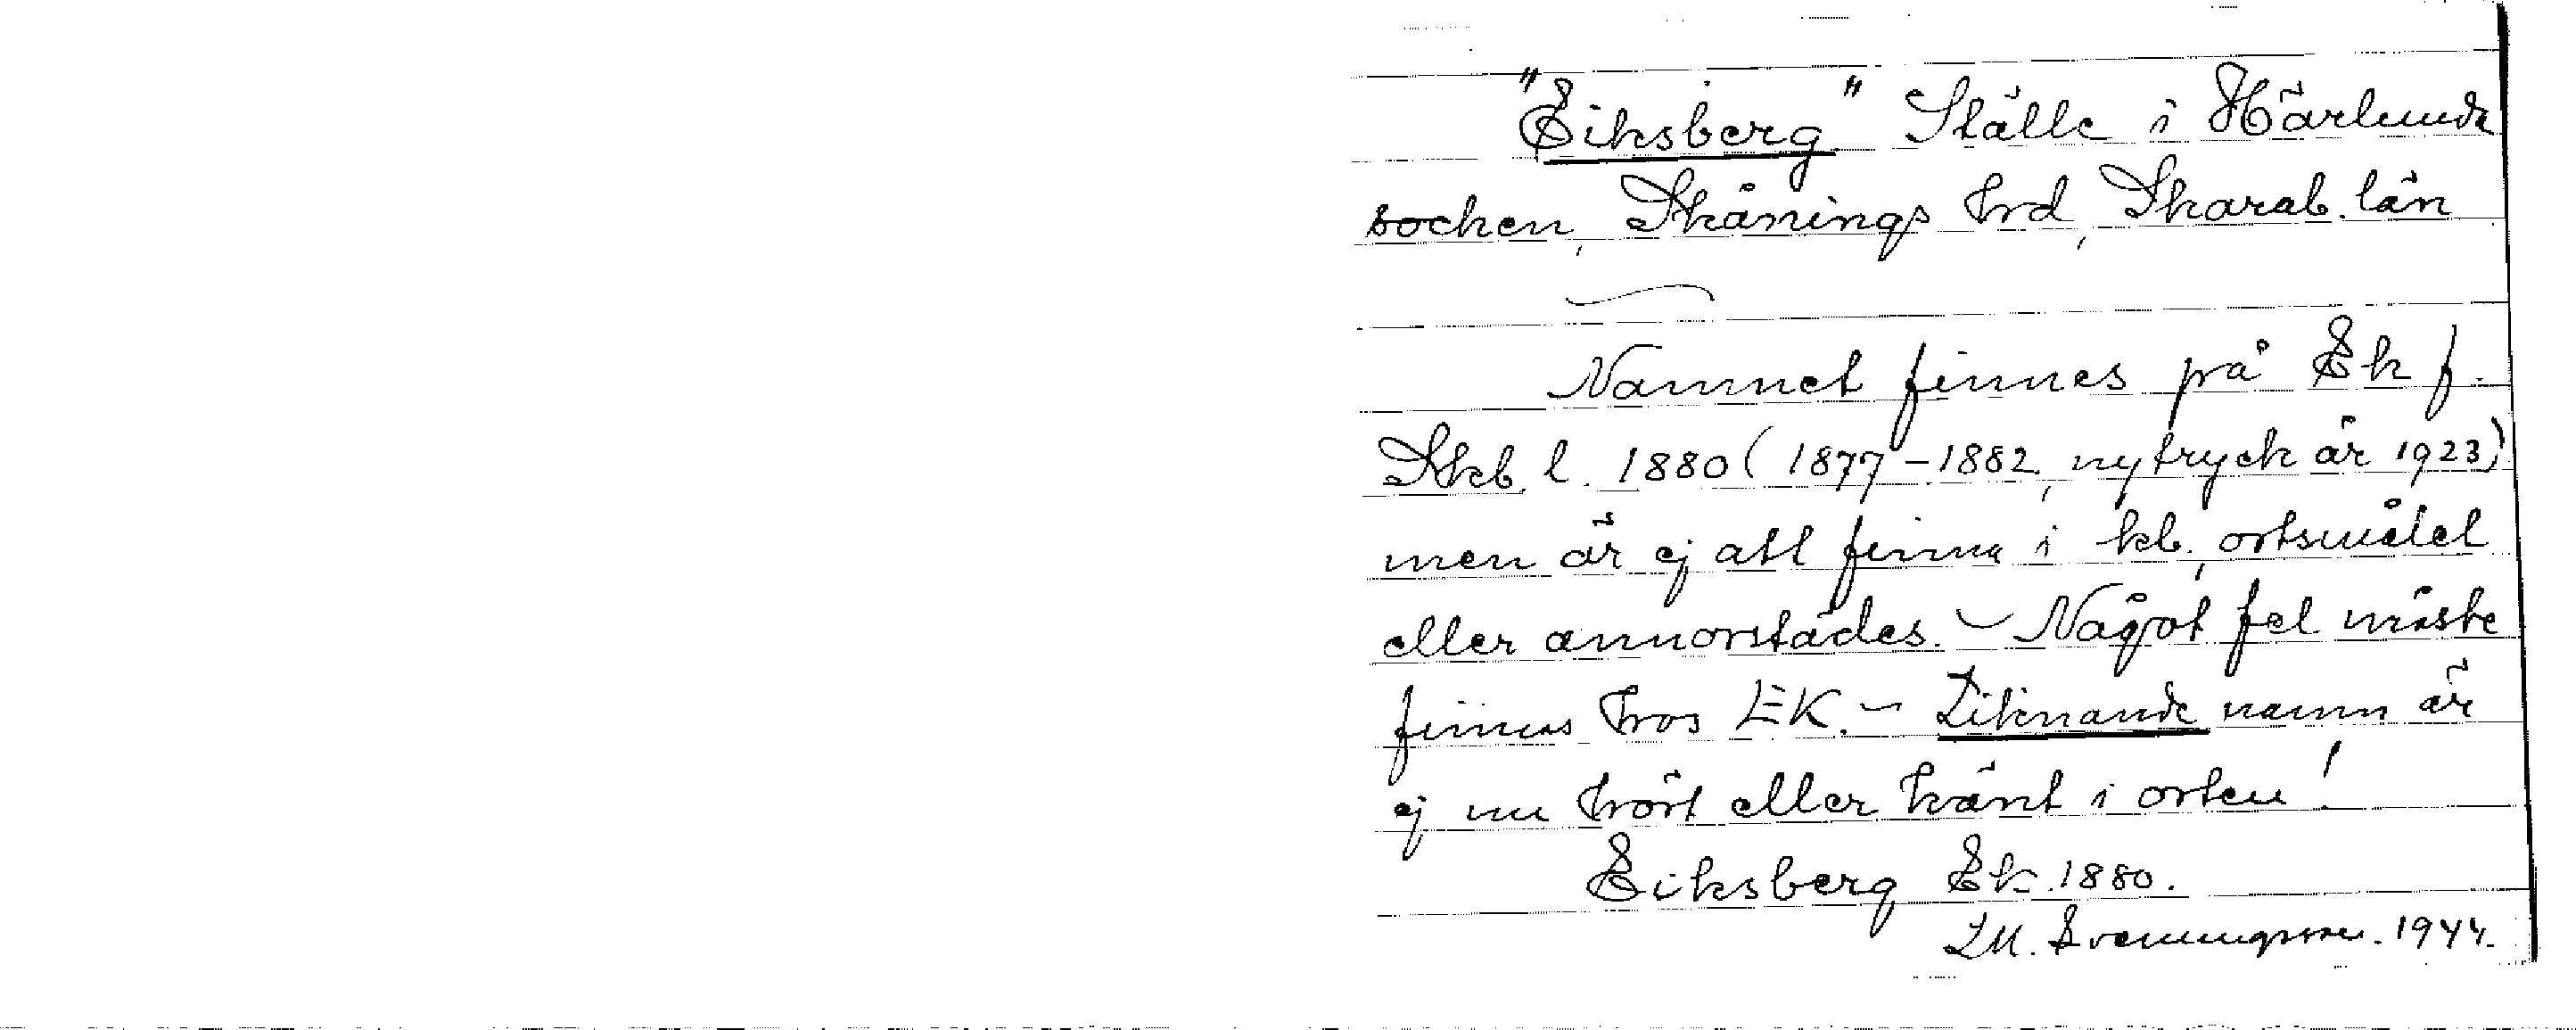 "Eiksberg" Ställe i Härlunda
socken, Skånings hrd, Skarab. län
Namnet finnes på Ek f.
Skb. l. 1880 (1877-1882, nytryck år 1923)
men är ej att finna i kb, ortsmålet
eller annorstädes. - Något fel måste
finnas hos EK. - Liknande namn är
ej nu hört eller känt i orten!
Eiksberg Ek. 1880.
LM. Svenungsson. 1944.